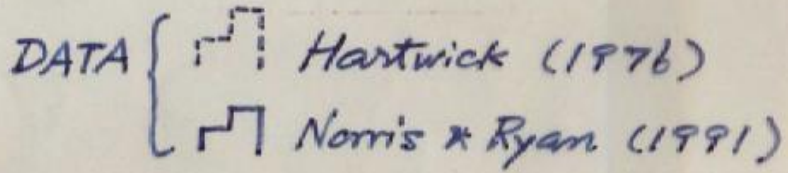 DATA { Hartwick (1976)
Norris & Ryan (1991)